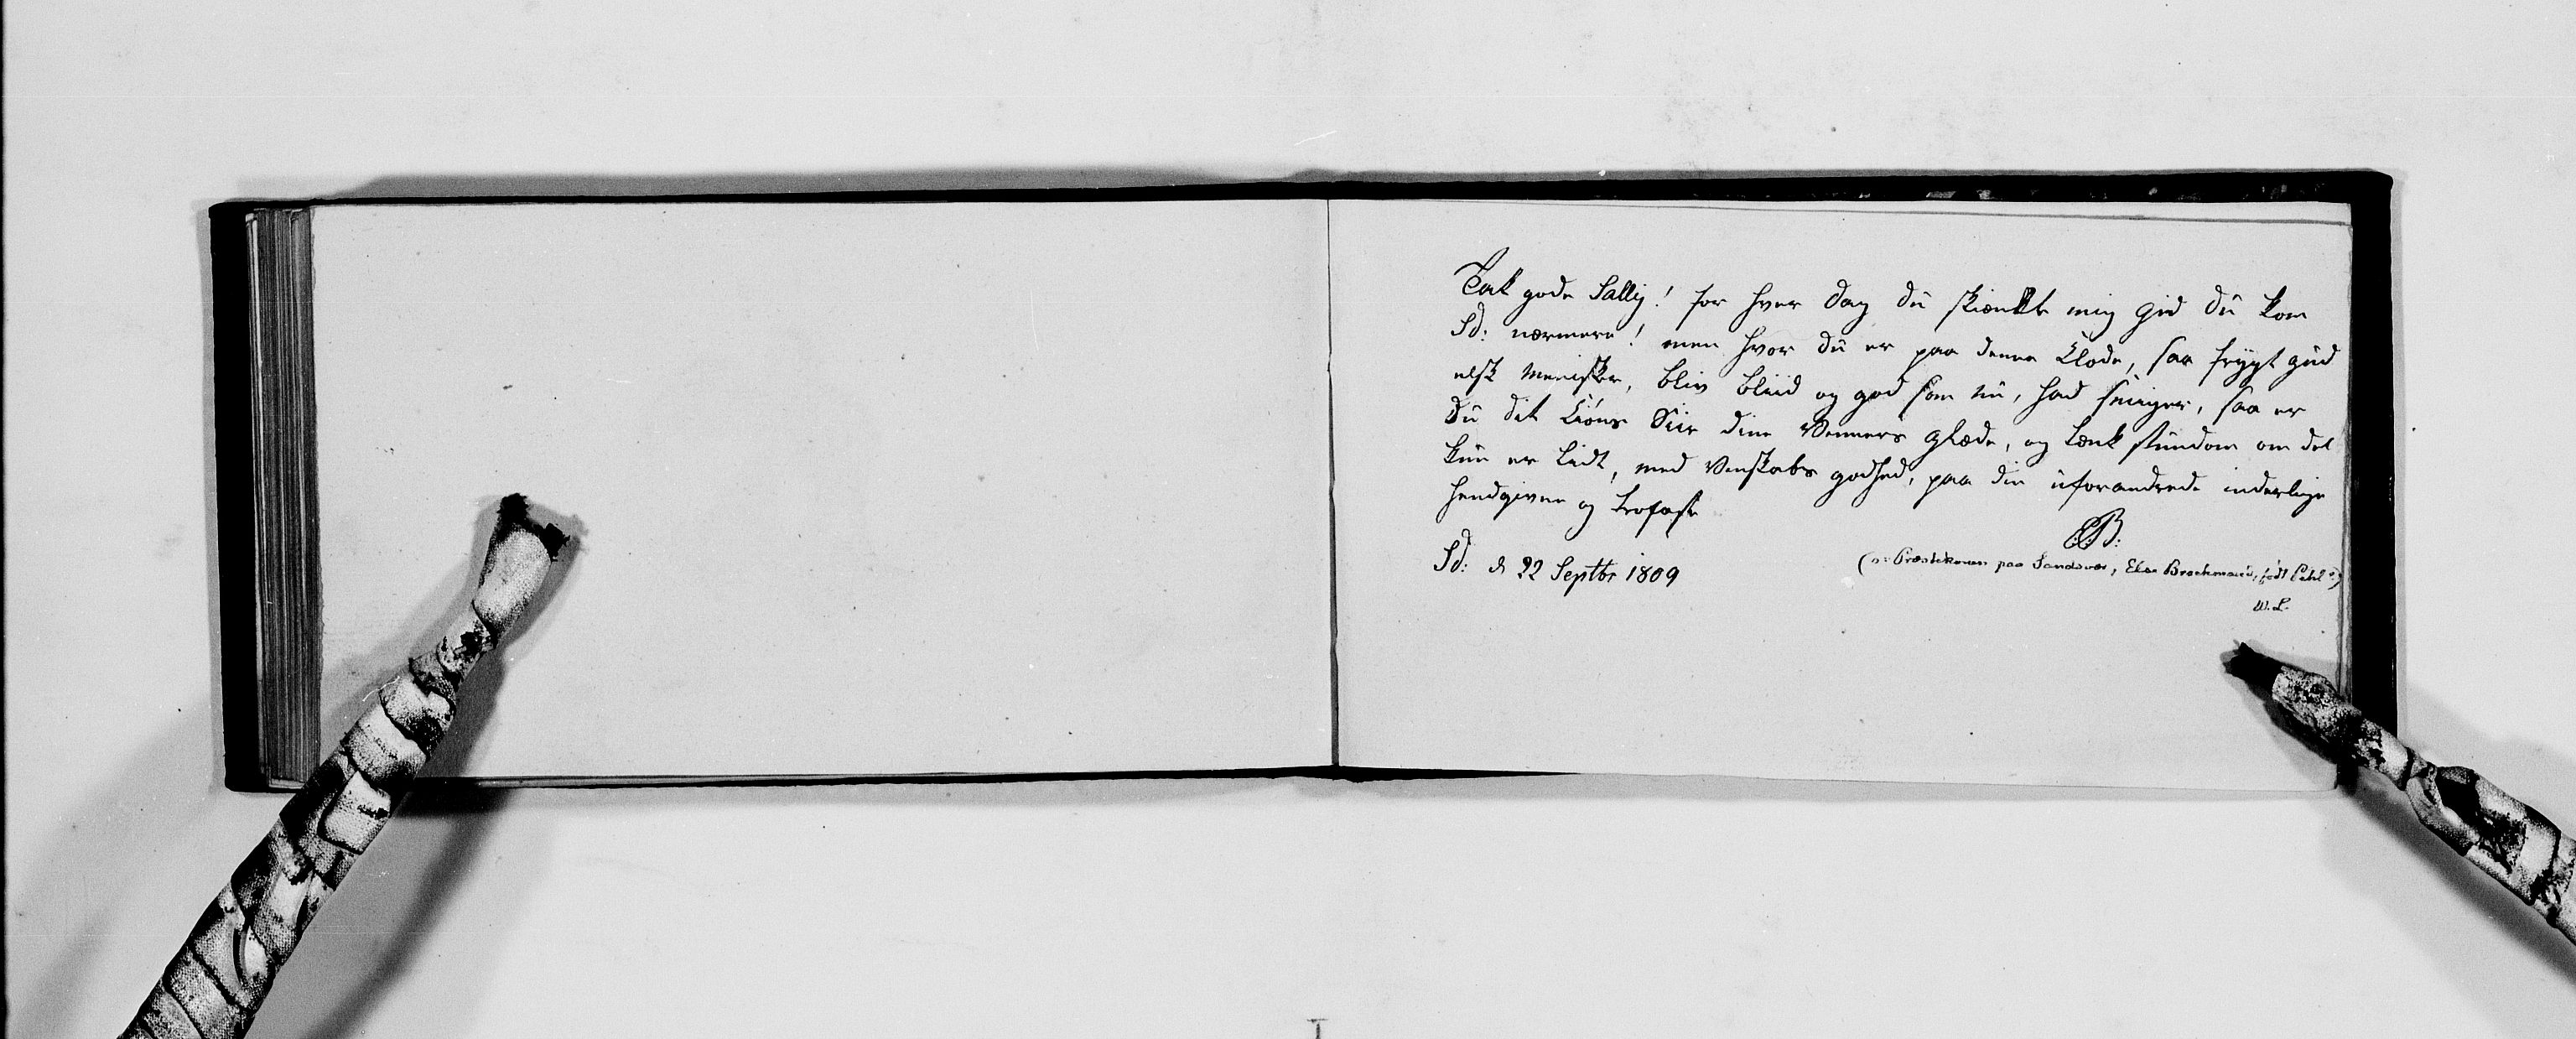 Tak gode Sally! for hver Dag du skienkte mig gid du kom
Sd: nærmere! men hvor du er paa denne Klode, saa frygt gud
elsk Menisker, bliv bliid og god som nu, had ingen, saa er
Du dit Kiøns Siir dine Venners Glæde, og tænk stundom om det
kun er lidt, med Venskabs godhed, paa din uforandrede inderlige
hendgivne og trofaste
EB:
Sd: d 22 Septbr 1809
(ɔ: Præstekonen paa Sandsvær, Else Brochmand, født Dahl?)
W. L.